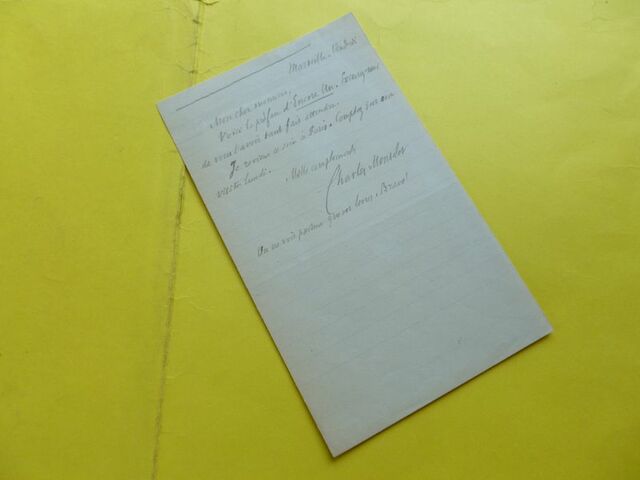 Marseille - Vendredi
Mon cher monsieur,
Voici la préface d'Encore Un. Excusez-moi
de vous avoir tant fait attendre.
Je reviens ce soir à Paris. Comptez sur ma
visite lundi.
Mille compliments
Charles Monselet
On ne voit partout que vos livres. Bravo!